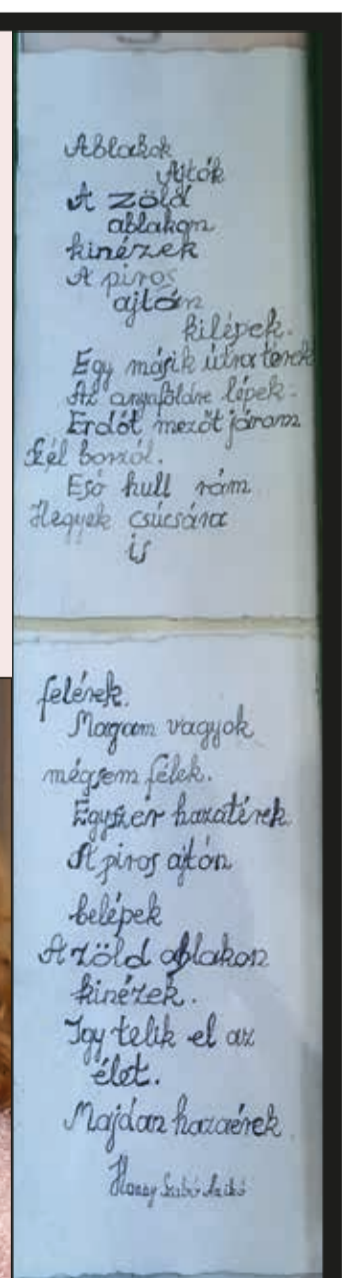 Ablakok
Ajtók
A zöld
ablakon
kinézek
A piros
ajtón
kilépek.
Egy másik útra térek
Az anyaföldre lépek.
Erdőt mezőt járom
Szél borzol.
Eső hull rám
Hegyek csúcsára
is
felérek.
Magam vagyok
mégsem félek.
Egyszer hazatérek
A piros ajtón
belépek
A zöld ablakon
kinézek.
Igy telik el az
élet.
Majdan hazaérek
Szabó